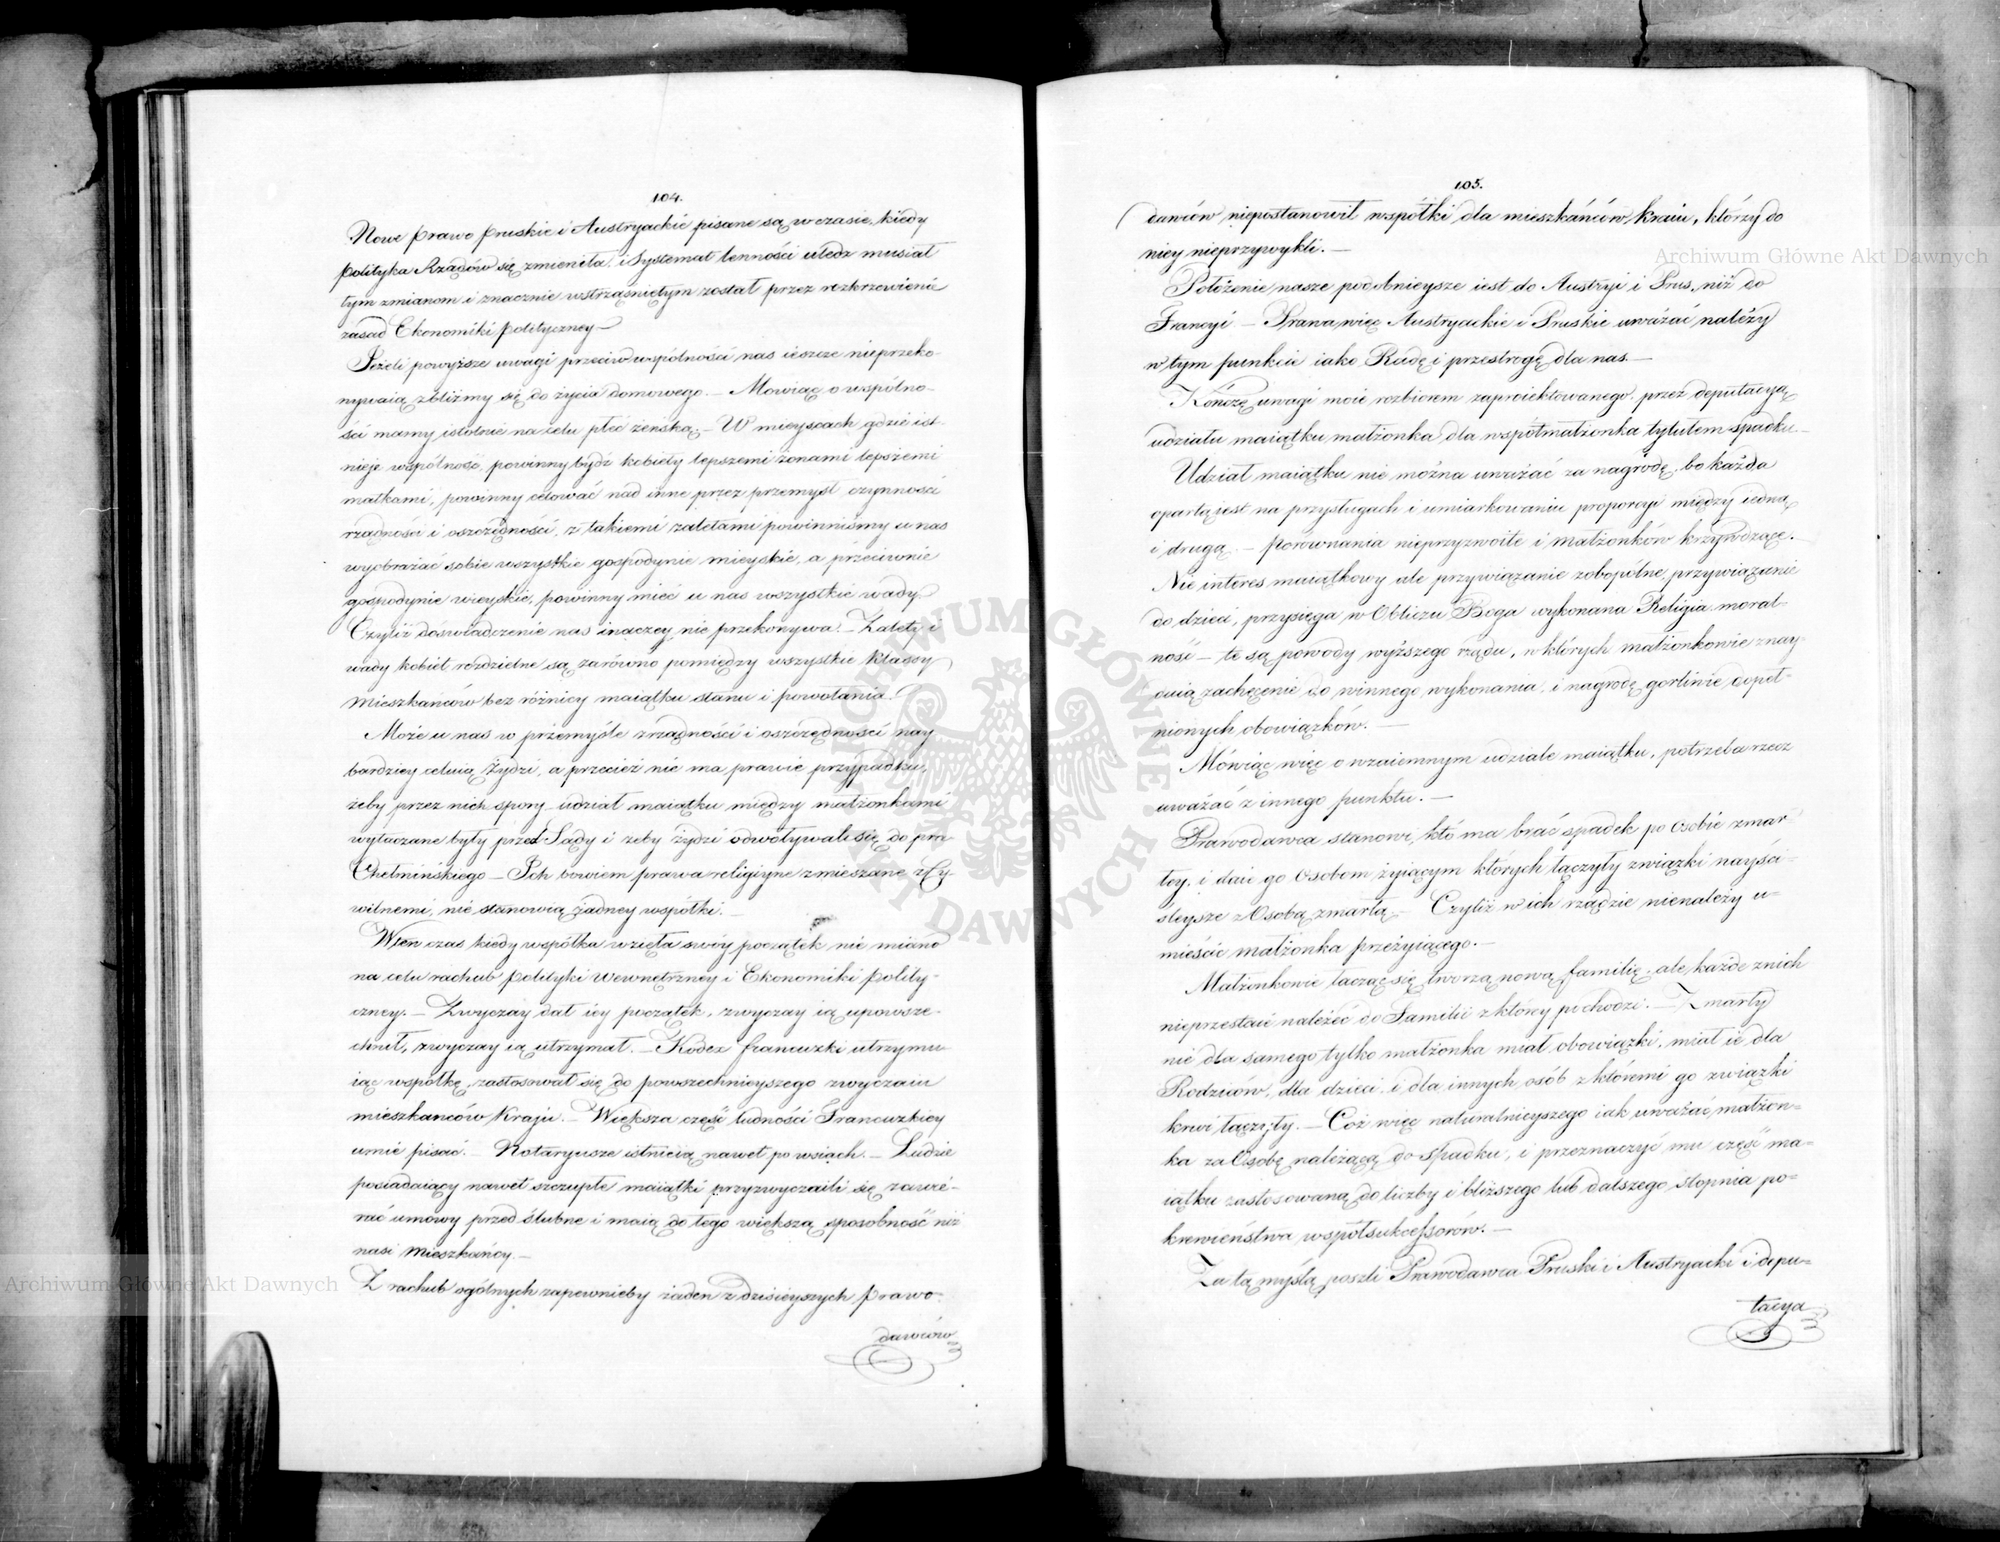 104.
Nowe prawo pruskie i Austryackie pisane są w czasie, kiedy
polityka Rządów się zmieniła, i Systemat lenności uledz musiał
tym zmianom i znacznie wstrząśniętym został przez rozkrzewienie
zasad Ekonomiki polityczney —
Jeżeli powyższe uwagi przeciw wspólności nas ieszcze nieprzeko-
nywaią zbliżmy się do życia domowego. — Mowiąc o wspólno-
ści mamy istotnie na celu płeć żeńską. — W mieyscach gdzie ist-
nieje wspólność, powinny bydź kobiety lepszemi żonami lepszemi
matkami, powinny celować nad inne przez przemysł czynności
rządności i oszczędności, z takiemi zaletami powinniśmy u nas
wyobrażać sobie wszystkie gospodynie mieyskie, a przeciwnie
gospodynie wieyskie, powinny mieć u nas wszystkie wady
Czyliż doświadczenie nas inaczey nie przekonywa? — Zalety i
wady kobiet rozdzielne są zarówno pomiędzy wszystkie klassy
Mieszkańców bez różnicy maiątku stanu i powołania.
Może u nas w przemyśle rządności i oszczędności nay
bardziey celuią Żydzi, a przecież nie ma prawie przypadku,
żeby przez nich spory udział maiątku między małżonkami
wytaczane były przed Sądy i żeby żydzi odwoływali się do pra
Chełmińskiego — Ich bowiem prawa religiyne zmieszane z Cy-
wilnemi, nie stanowią żadney wspólki. —
Wten czas kiedy wspólka wzięła swóy początek nie miano
na celu rachub polityki wewnętrzney i Ekonomiki polity-
czney. — Zwyczay dał iey początek, zwyczay ią upowsze-
chnił, zwyczay ią utrzymał. — Kodex francuzki utrzymu-
iąc wspólkę, zastosował się do powszechnieyszego zwyczaiu
mieszkanców Kraju. — Większa część ludności Francuzkiey
umie pisać. — Notaryusze istnieią nawet po wsiach. — Ludzie
posiadaiący nawet szczupłe maiątki przyzwyczaili się zawié-
rać umowy przed ślubne i maią do tego większą sposobność niż
nasi Mieszkańcy. —
Z rachub ogólnych zapewnieby żaden z dzisieyszych prawo-
dawców
105.
dawców niepostanowił wspólki dla mieszkańców kraiu, którzy do
niey nieprzywykli. —
Położenie nasze podobnieysze iest do Austryi i Prus, niż do
Francyi — Prawa więc Austryackie i Pruskie uważać należy
w tym punkcie iako Radę i przestrogę dla nas. —
Kończę uwagi moie rozbiorem zaproiektowanego przez deputacyą
udziału maiątku małżonka dla współmałżonka tytułem spadku. —
Udział maiątku nie można uważać za nagrodę, bo każda
opartą iest na przysługach i umiarkowaniu proporcyi między iedną
i drugą. — porównania nieprzyzwoite i małżonków krzywdzące. —
Nie interes maiątkowy ale przywiązanie zobopólne, przywiązanie
do dzieci, przysięga w Obliczu Boga wykonana Religia moral-
ność — te są powody wyższego rządu, w których małżonkowie znay-
duią zachęcenie do winnego wykonania, i nagrodę gorliwie dopeł-
nionych obowiązków. —
Mówiąc więc o wzaiemnym udziale maiątku, potrzeba rzecz
uważać z innego punktu. —
Prawodawca stanowi, kto ma brać spadek po osobie zmar-
łey, i daie go osobom żyiącym których łączyły związki nayści-
śleysze z Osobą zmarłą. — Czyliż w ich rządzie nienależy u-
mieścić małżonka przeżyiącego. —
Małżonkowie łacząc się tworzą nową familię, ale każde z nich
nieprzestaie należéć do Familii z którey pochodzi. — Zmarły
nie dla samego tylko małżonka miał obowiązki, miał ie dla
Rodziców, dla dzieci, i dla innych osób z któremi go związki
krwi łączyły. — Coż więc naturalnieyszego iak uważać małżon-
ka za Osobę należącą do Spadku, i przeznaczyć mu część ma-
iątku zastosowaną do liczby i bliższego lub dalszego stopnia po-
krewieństwa współsukcessorów. —
Za tą myślą poszli Prawodawca Pruski i Austryacki i depu-
tacya
Archiwum Główne Akt Dawnych
Archiwum Główne Akt Dawnych
ARCHIWUM GŁÓWNE AKT DAWNYCH